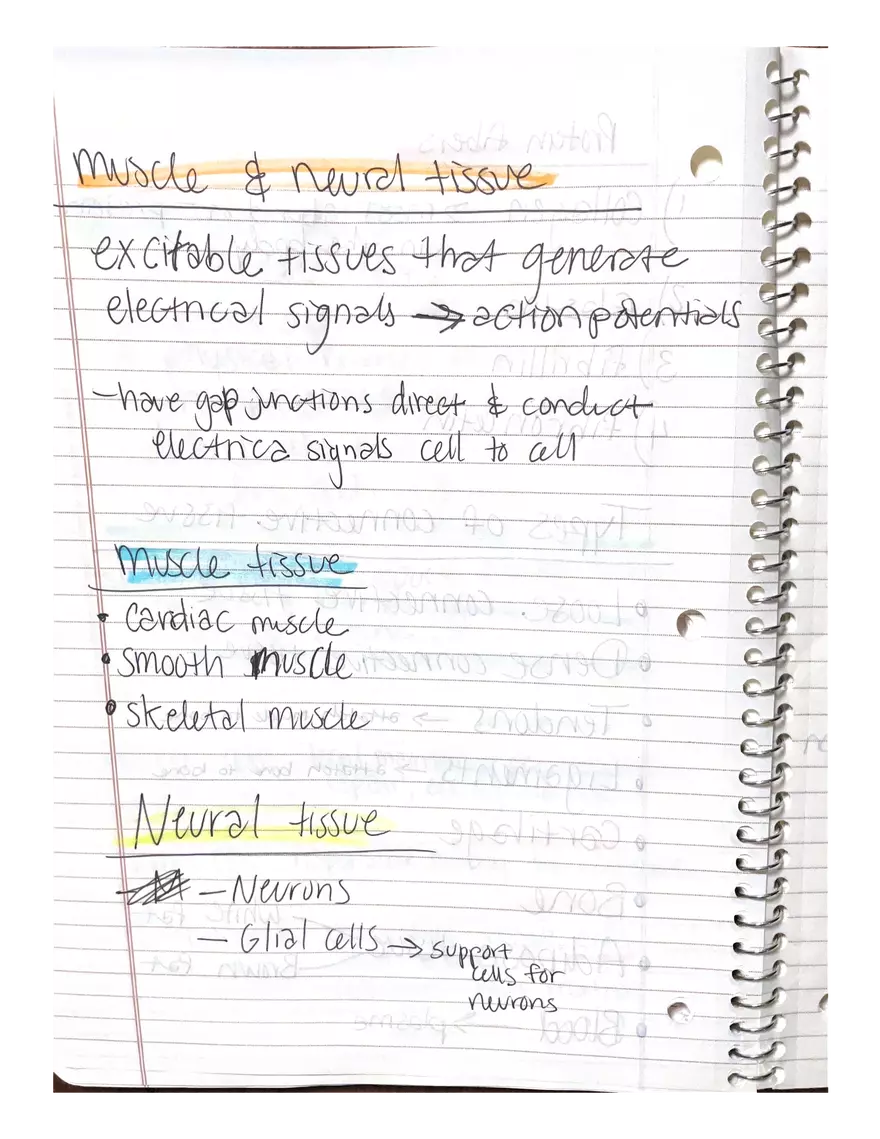 Muscle & Neural tissue
excitable tissues that generate
electrical signals → action potentials
- have gap junctions direct & conduct
electrica signals cell to cell
Muscle tissue
• Cardiac muscle
• Smooth Muscle
• Skeletal muscle
Neural tissue
- Neurons
- Glial cells → support
cells for
neurons